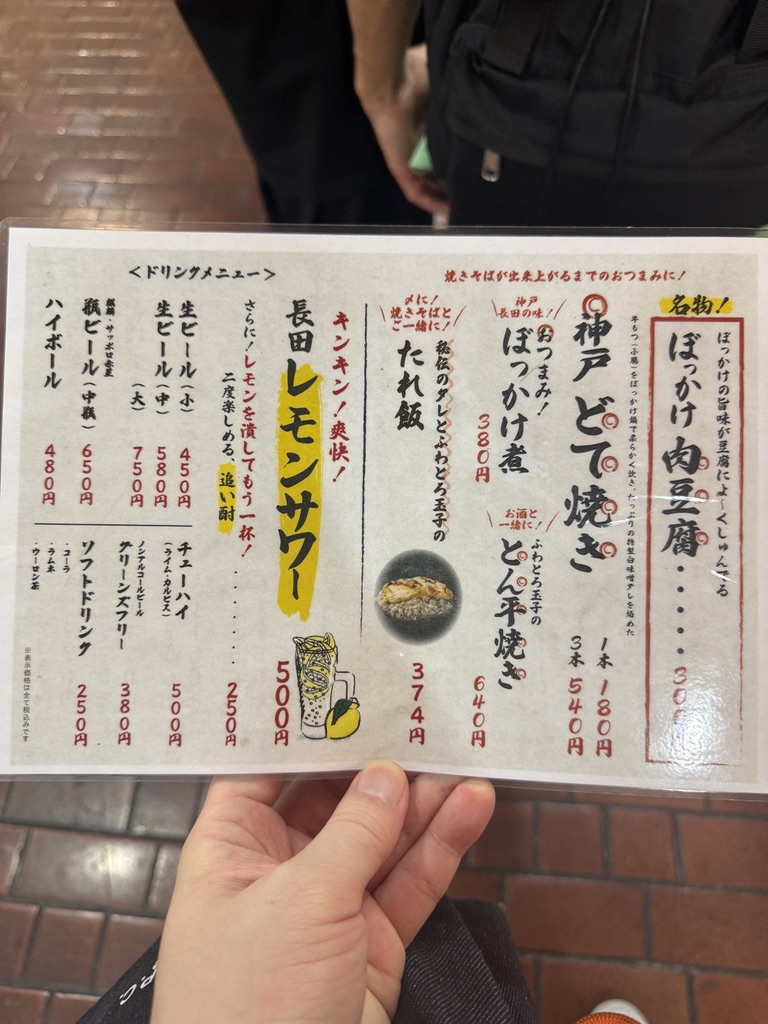 名物！
ぼっかけの旨味が豆腐によ〜くしゅんでる
ぼっかけ肉豆腐・・・・・
焼きそばが出来上がるまでのおつまみに！
牛もつ（小腸）をぼっかけ鍋で柔らかく炊き、たっぷりの特製白味噌ダレを絡めた
神戸どて焼き
1本 180円
3本 540円
神戸
長田の味！
おつまみ！
ぼっかけ煮
380円
お酒と
一緒に！
ふわとろ玉子の
とん平焼き
640円
〆に！
焼きそばと
ご一緒に！
秘伝のタレとふわとろ玉子の
たれ飯
374円
＜ドリンクメニュー＞
キンキン！爽快！
長田レモンサワー
500円
さらに！レモンを潰してもう一杯！
二度楽しめる、追い酎・・・・・
250円
生ビール（小） 450円
生ビール（中） 580円
（大） 750円
麒麟・サッポロ赤星
瓶ビール（中瓶） 650円
ハイボール 480円
チューハイ
（ライム・カルピス）
500円
ノンアルコールビール
グリーンズフリー
380円
ソフトドリンク
250円
・コーラ
・ラムネ
・ウーロン茶
※表示価格は全て税込みです